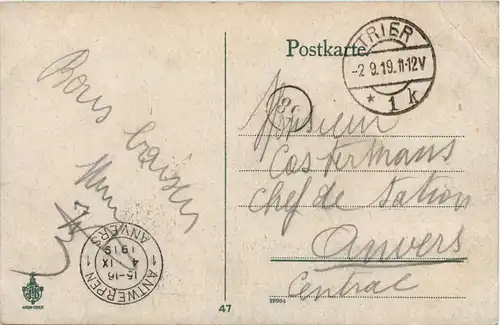 Postkarte
TRIER
-2.9.19.11-12V
* 1 k
Bons baisers
Monsieur
Costermans
chef de station
Anvers
Central
ANTWERPEN
15-16
4 IX
1919
ANVERS
47